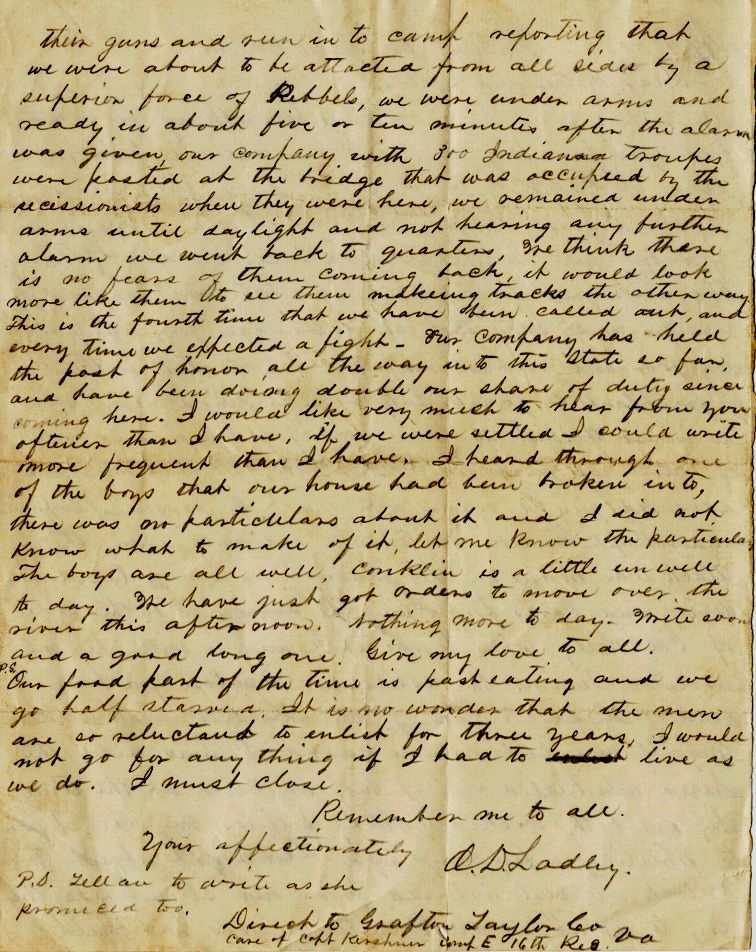 their guns and run in to camp reporting that
we were about to be attacted from all sides by a
superior force of Rebbels, we were under arms and
ready in about five or ten minutes after the alarm
was given, our company with 300 Indianaa troupes
were posted at the bridge that was occupied by the
secissionists when they were here, we remained under
arms until daylight and not hearing any further
alarm we went back to quarters, We think there
is no fears of them coming back, it would look
more like them to see them makeing tracks the other way
This is the fourth time that we have been called out, and
every time we expected a fight - Our company has held
the post of honor all the way into this State so far,
and have been doing double our share of duty since
coming here. I would like very much to hear from you
oftener than I have, if we were settled I could write
more frequent than I have. I heard through one
of the boys that our house had been broken into,
there was no particulars about it and I did not
know what to make of it, let me know the particula
The boys are all well, Conklin is a little unwell
to day. We have just got orders to move over the
river this afternoon. Nothing more to day. Write soon
and a good long one. Give my love to all.
P.S. Our food part of the time is past eating and we
go half starved. It is no wonder that the men
are so reluctand to enlist for three years, I would
not go for any thing if I had to enlist live as
we do. I must close.
Remember me to all.
Your affectionately
O. D. Ladley.
P.S. Tell to write as she
promiced too.
Direct to Grafton Taylor Co
care of Capt Kershner Comp E 16th Reg. Va